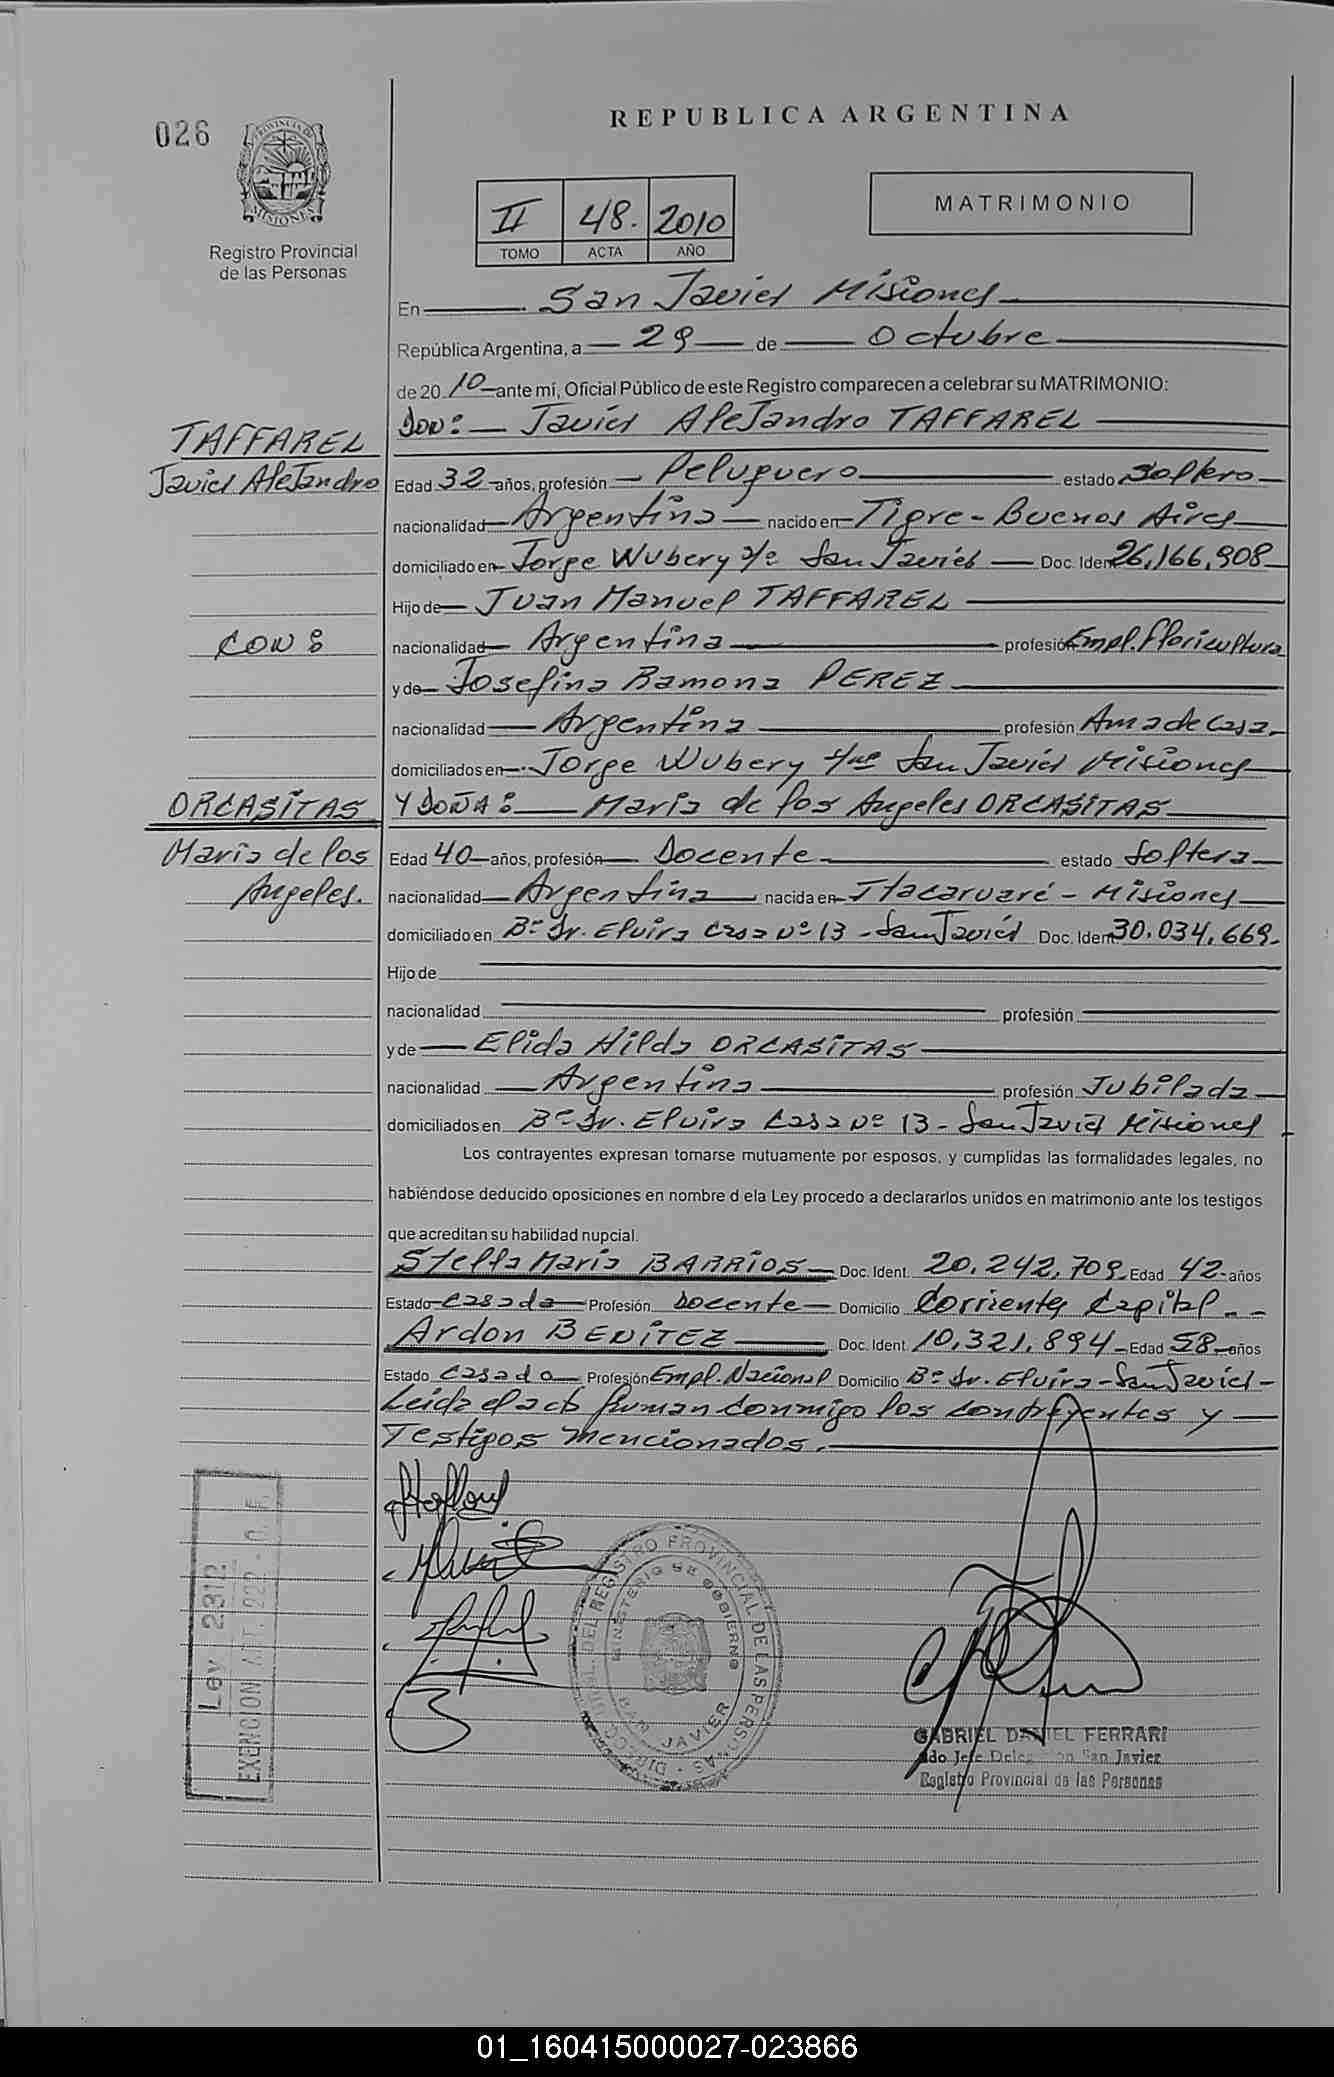 026
PROVINCIA DE
MISIONES
Registro Provincial
de las Personas
REPUBLICA ARGENTINA
II 48. 2010
TOMO ACTA AÑO
MATRIMONIO
En San Javier Misiones
República Argentina, a 29 de Octubre
de 20 10 ante mí, Oficial Público de este Registro comparecen a celebrar su MATRIMONIO:
Don: Javier Alejandro TAFFAREL
TAFFAREL
Javier Alejandro
Edad 32 años, profesión Peluquero estado Soltero
nacionalidad Argentina nacido en Tigre - Buenos Aires
domiciliado en Jorge Wubery s/e San Javier Doc. Ident 26,166,908
Hijo de Juan Manuel TAFFAREL
CON:
nacionalidad Argentina profesión Empl. Floricultura
y de Josefina Ramona PEREZ
nacionalidad Argentina profesión Ama de Casa.
domiciliados en Jorge Wubery San Javier Misiones
ORCASITAS
Y DOÑA: Maria de los Angeles ORCASITAS
Maria de los
Angeles.
Edad 40 años, profesión Docente estado Soltera
nacionalidad Argentina nacida en Itacaruaré - Misiones
domiciliado en Bº Sr. Elvira Casa Nº 13 - San Javier Doc. Ident 30.034.669.
Hijo de
nacionalidad profesión
y de Elida Hilda ORCASITAS
nacionalidad Argentina profesión Jubilada
domiciliados en Bº Sr. Elvira Casa Nº 13 - San Javier Misiones
Los contrayentes expresan tomarse mutuamente por esposos, y cumplidas las formalidades legales, no
habiéndose deducido oposiciones en nombre d ela Ley procedo a declararlos unidos en matrimonio ante los testigos
que acreditan su habilidad nupcial.
Stella Maris BARRIOS Doc. Ident. 20.242.709 Edad 42 años
Estado Casada Profesión Docente Domicilio Corrientes Capital
Ardon BENITEZ Doc. Ident. 10.321.894 Edad 58 años
Estado Casado Profesión Empl. Nacional Domicilio Bº Sr. Elvira - San Javier -
Leida el acta firman conmigo los contrayentes y
Testigos mencionados.
Ley 2312
EXENCION ART. 222
REGISTRO PROVINCIAL DE LAS PERSONAS
MINISTERIO DE GOBIERNO
SAN JAVIER
GABRIEL DANIEL FERRARI
Jefe Delegación San Javier
Registro Provincial de las Personas
01_160415000027-023866